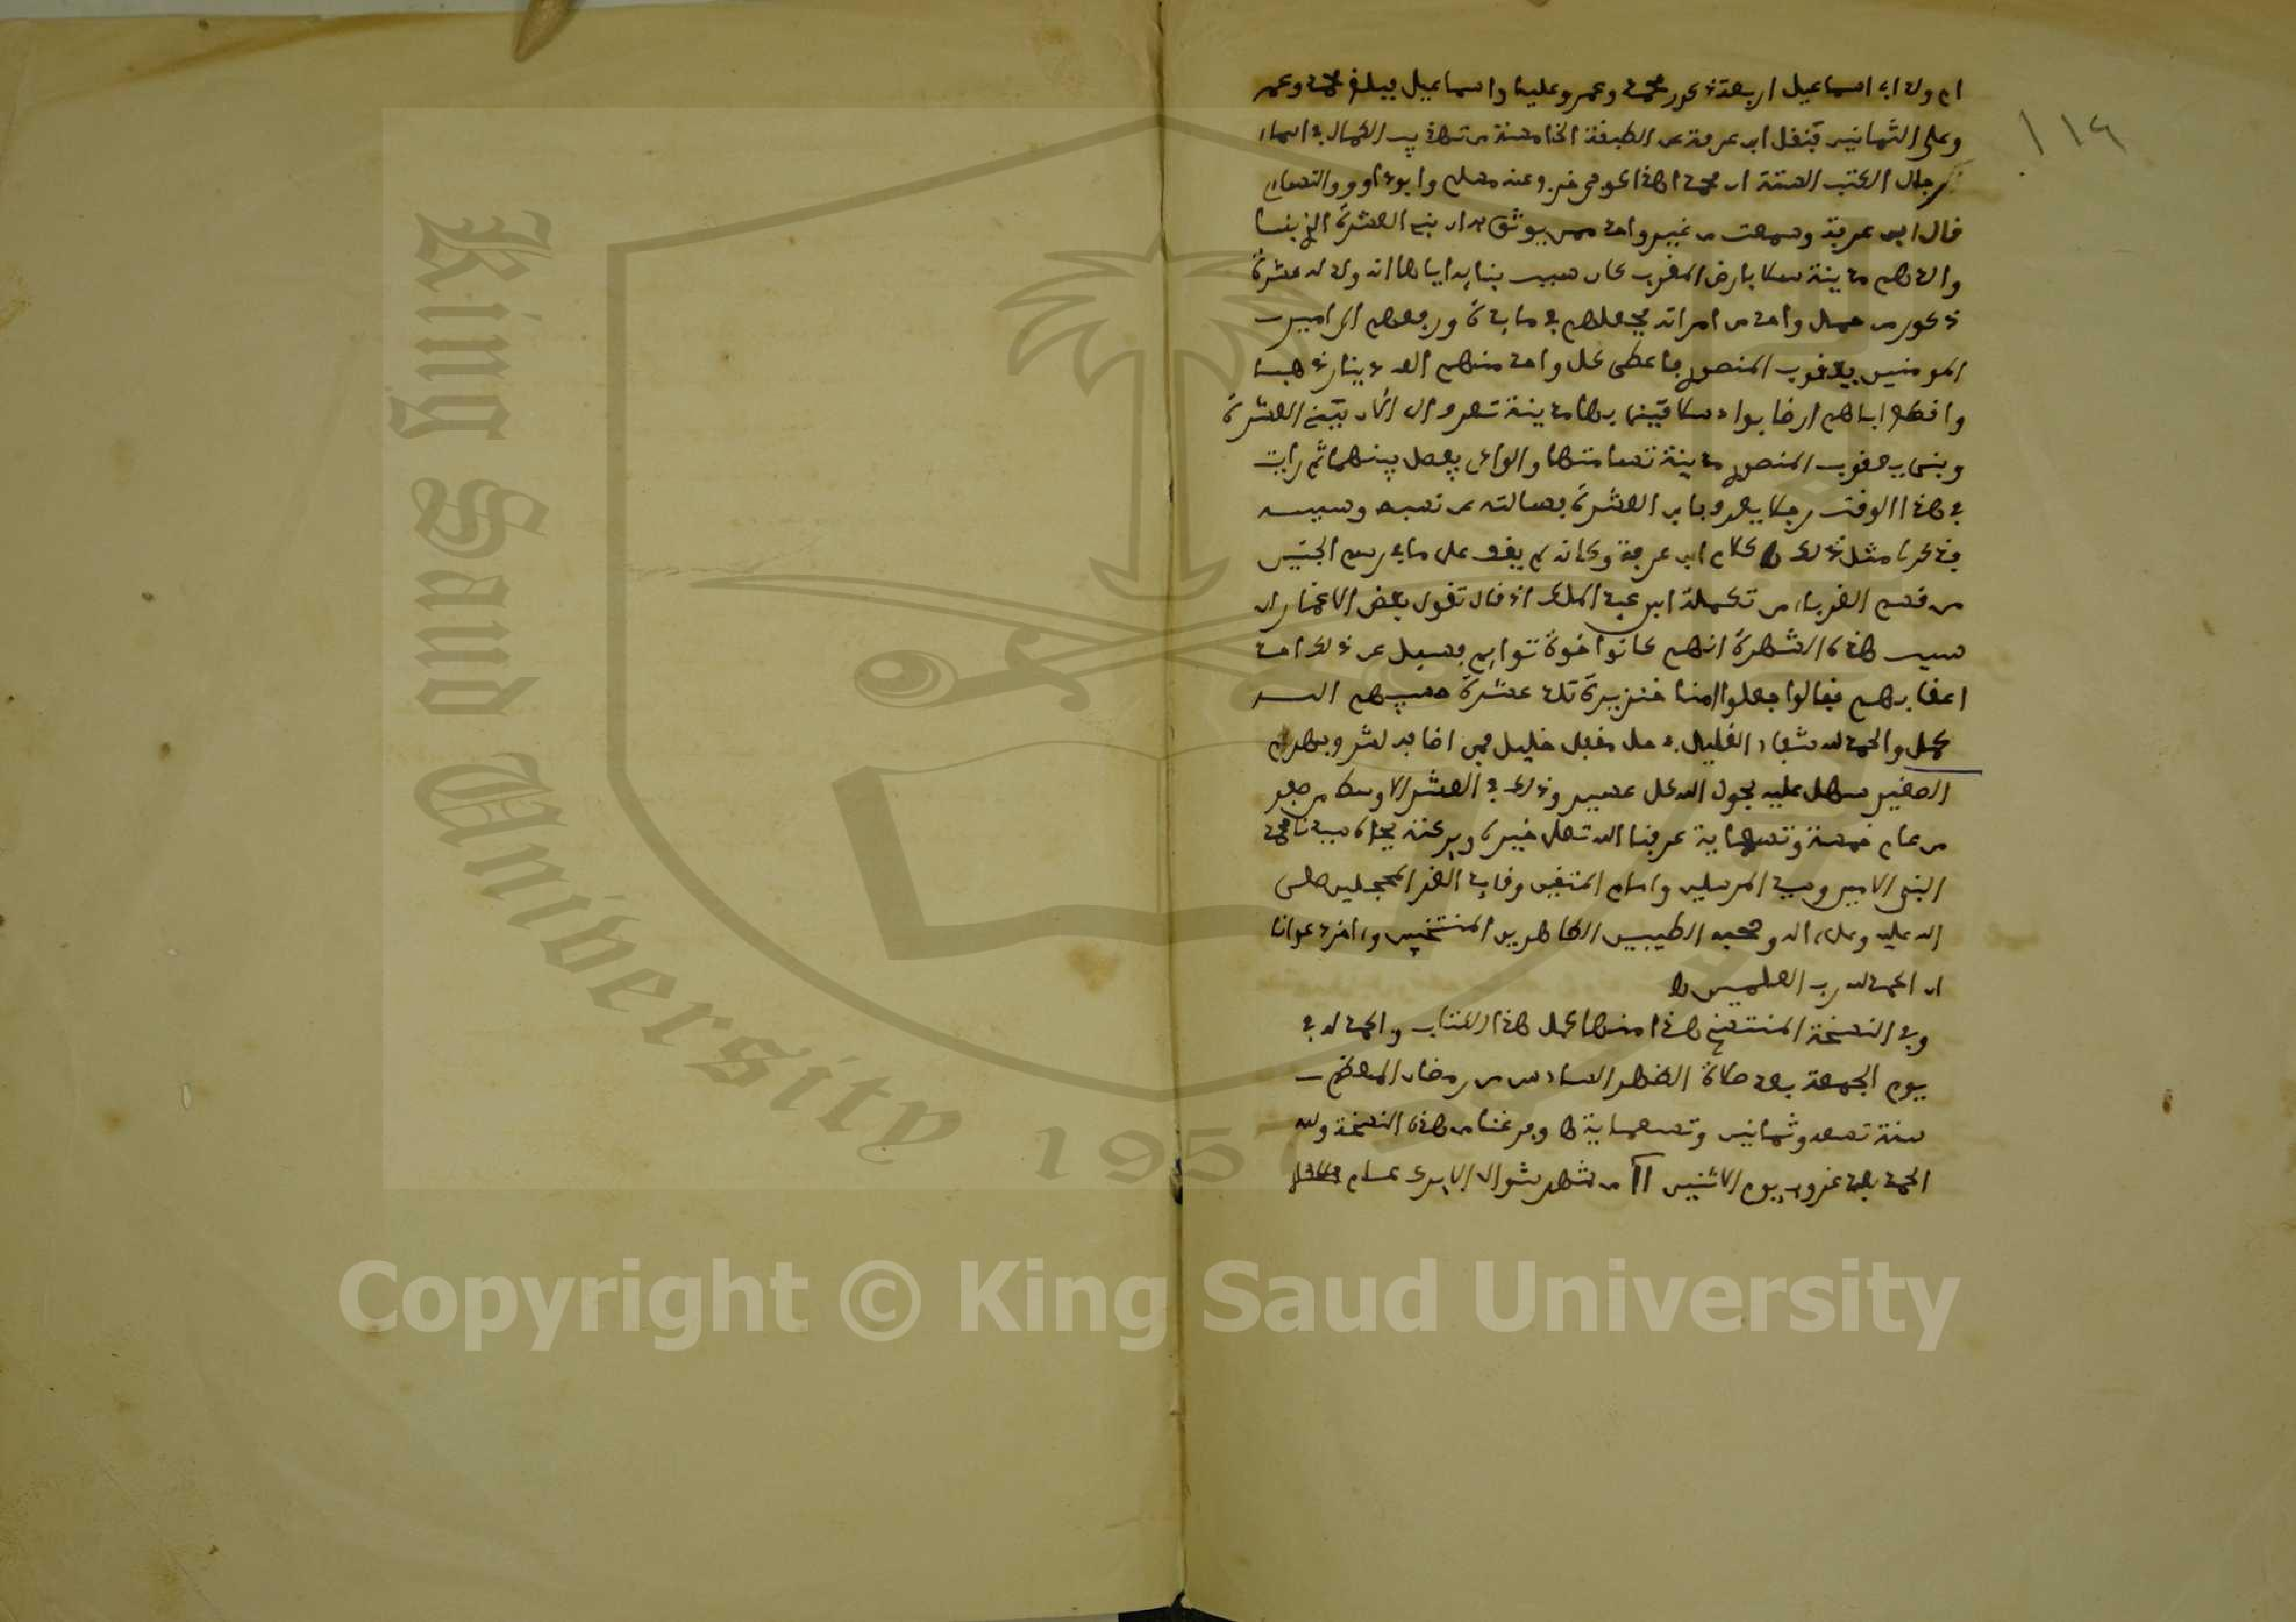 ام ولد ابي اسماعيل اربعة ذكور محمد وعمر وعليا واسماعيل فبلغ محمد وعمر
وعلي الثمانين فنقل ابن عرفة عن الطبقة الخامسة من تهذيب الكمال في اسماء
رجال الكتب الستة ان محمدا هذا كوفي وعنه مسلم وابو داوود والنسائي
قال ابن عرفة وسمعت من غير واحد ممن يوثق به ان بني العشرة الذي بنا
والدهم مدينة سلا بارض المغرب كان سبب بنايه اياها انه ولد له عشرة
ذكور من حمل واحد من امراته فجعلهم في مايدة ورفعهم الى امير
المومنين يعقوب المنصور فاعطى كل واحد منهم الف دينار ذهبا
واقطع اباهم ارضا بواد سلا فبنى بها مدينة تعرف الى الان ببني العشرة
وبنى يعقوب المنصور مدينة تسامتها والوادي يفصل بينهما ثم رايت
في هذا الوقت رجلا يعرف بابن العشرة فسالته عن نسبه وسببه
فذكر لي مثل ذلك ه كلام ابن عرفة وكانه لم يقف على ما في رسم الجنين
من قسم الغرباء من تكملة ابن عبد الملك اذ قال تقول بعض الاغمار ان
سبب هذه الشهرة انهم كانوا اخوة توايم فسيل عن ذلك احد
اعقابهم فقال اوجعلوا امنا خنزيرة تلد عشرة حسيبهم الله
كمل والحمد لله شفاء الغليل في حل مقفل خليل
الصغير سهل عليه بحول الله كل عسير وذلك في العشر الاوسط من صفر
من عام خمسة وتسعماية عرفنا الله تعلى خيره وبركته بجاه سيدنا محمد
النبي الامين وسيد المرسلين وامام المتقين وقايد الغر المحجلين صلى
الله عليه وعلى اله وصحبه الطيبين الطاهرين المنتخبين واخر دعوانا
ان الحمد لله رب العلمين ه
وفي النسخة المنتسخ هذا منها كمل هذا الكتاب والحمد لله في
يوم الجمعة بعد صلاة الظهر السادس من رمضان المعظم
سنة تسعة وثمانين وتسعماية ه وفرغنا من هذه النسخة ولله
الحمد بعد غروب يوم الاثنين 11 من شهر شوال الابرك عام
١١٩
King Saud University
1957
Copyright © King Saud University